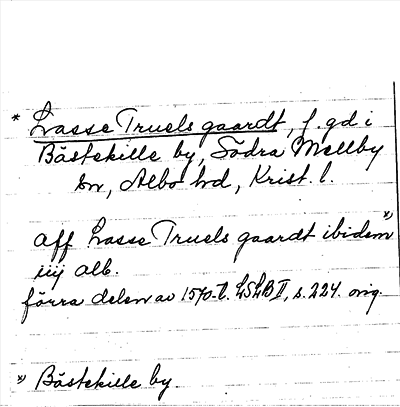 * Lasse Truels gaardt, f. gd i
Bästekille by, Södra Mellby
sn, Albo hd, Krist. l.
aff Lasse Truels gaardt ibidem *)
iiij alb.
förra delen av 1570-t. LSLB II, s. 224. orig.
*) Bästekille by.